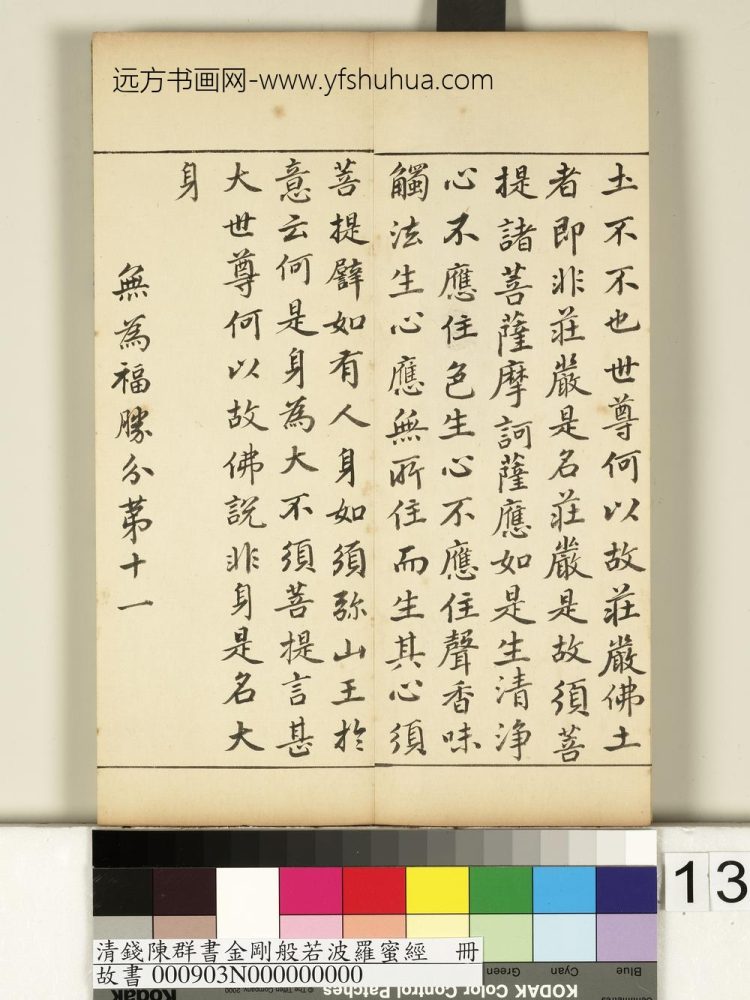 远方书画网-www.yfshuhua.com
土不不也世尊何以故莊嚴佛土
者即非莊嚴是名莊嚴是故須菩
提諸菩薩摩訶薩應如是生清浄
心不應住色生心不應住聲香味
觸法生心應無所住而生其心須
菩提譬如有人身如須弥山王於
意云何是身為大不須菩提言甚
大世尊何以故佛説非身是名大
身
無為福勝分第十一
13
清錢陳群書金剛般若波羅蜜經 冊
故書 000903N000000000
Blue
Cyan
Green
KODAK Color Control Patches
© The Tiffen Company, 2000